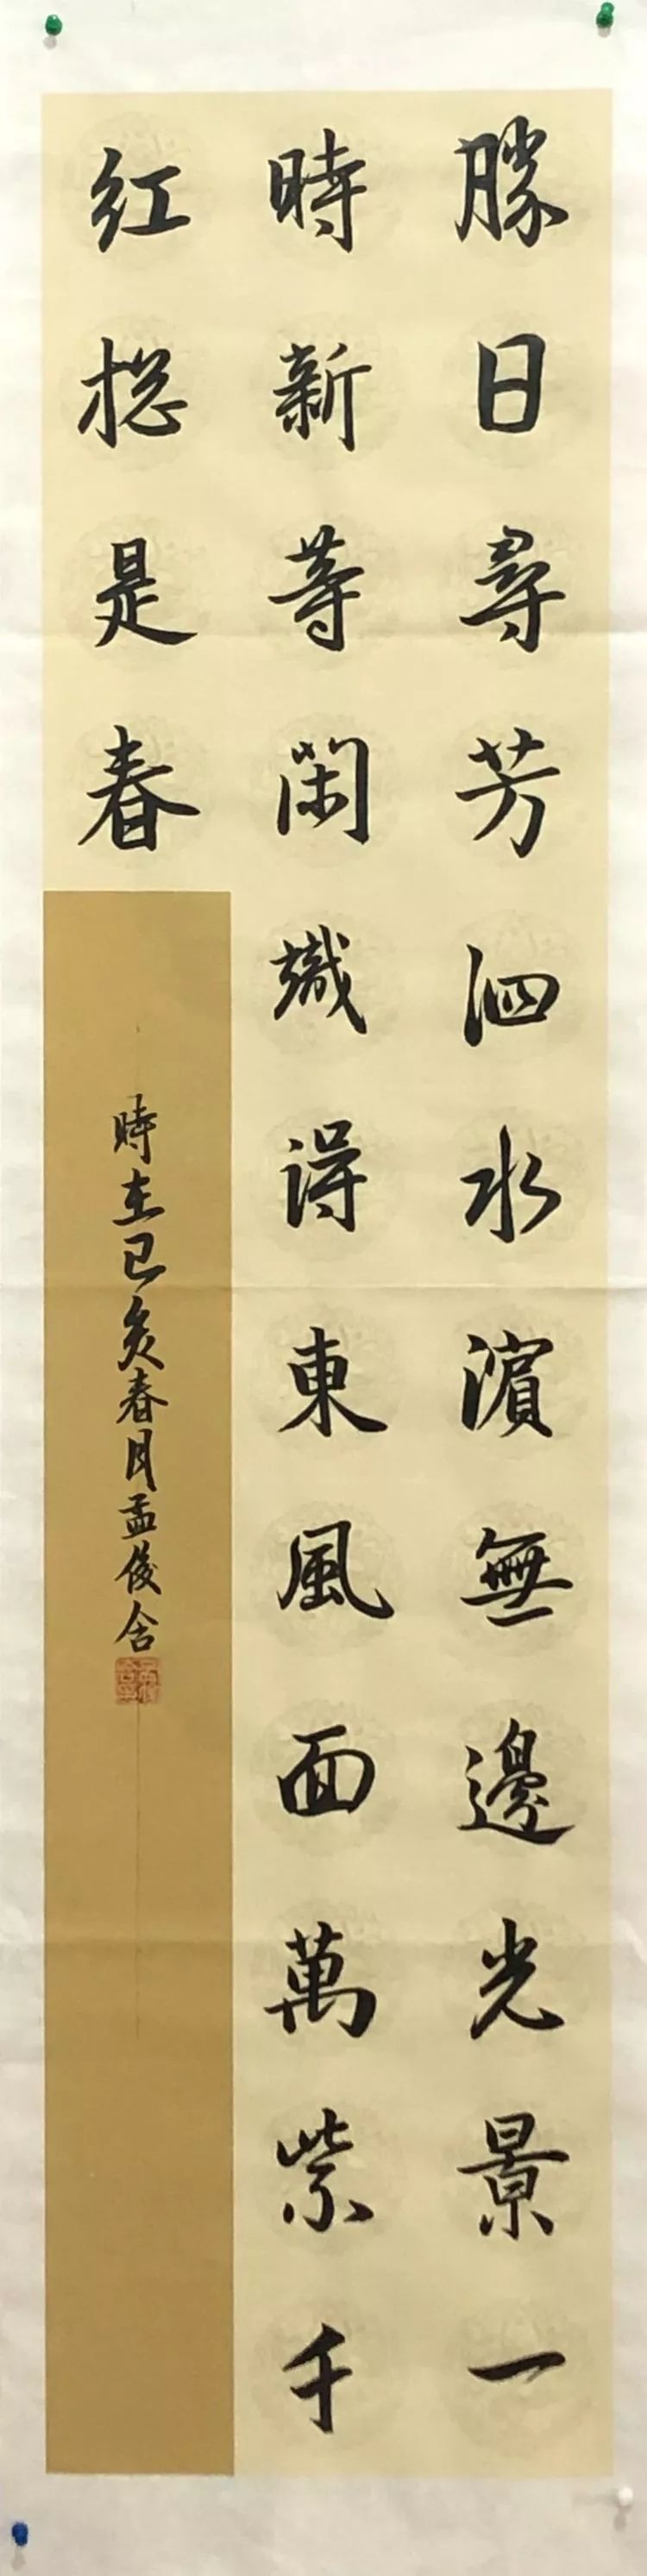 勝日尋芳泗水濱無邊光景一
時新等閑識得東風面萬紫千
紅總是春
時在己亥春月孟俊舍